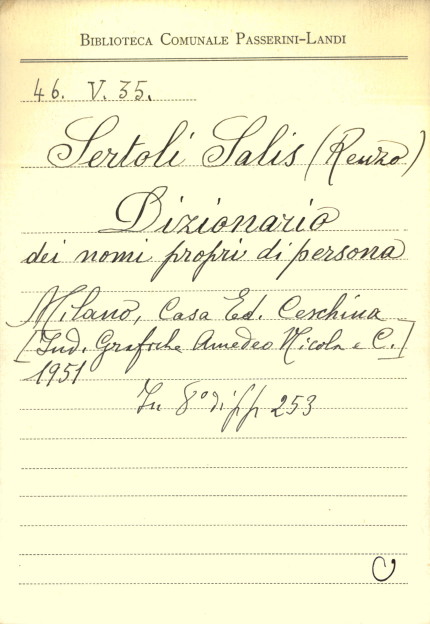 BIBLIOTECA COMUNALE PASSERINI-LANDI
46. V. 35.
Sertoli Salis (Renzo)
Dizionario
dei nomi propri di persona
Milano, Casa Ed. Ceschina
[Ind. Grafiche Amedeo Nicola e C.]
1951
In 8° di pp 253